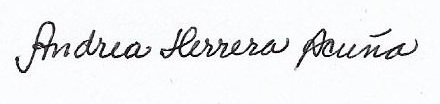 Andrea Herrera Acuña